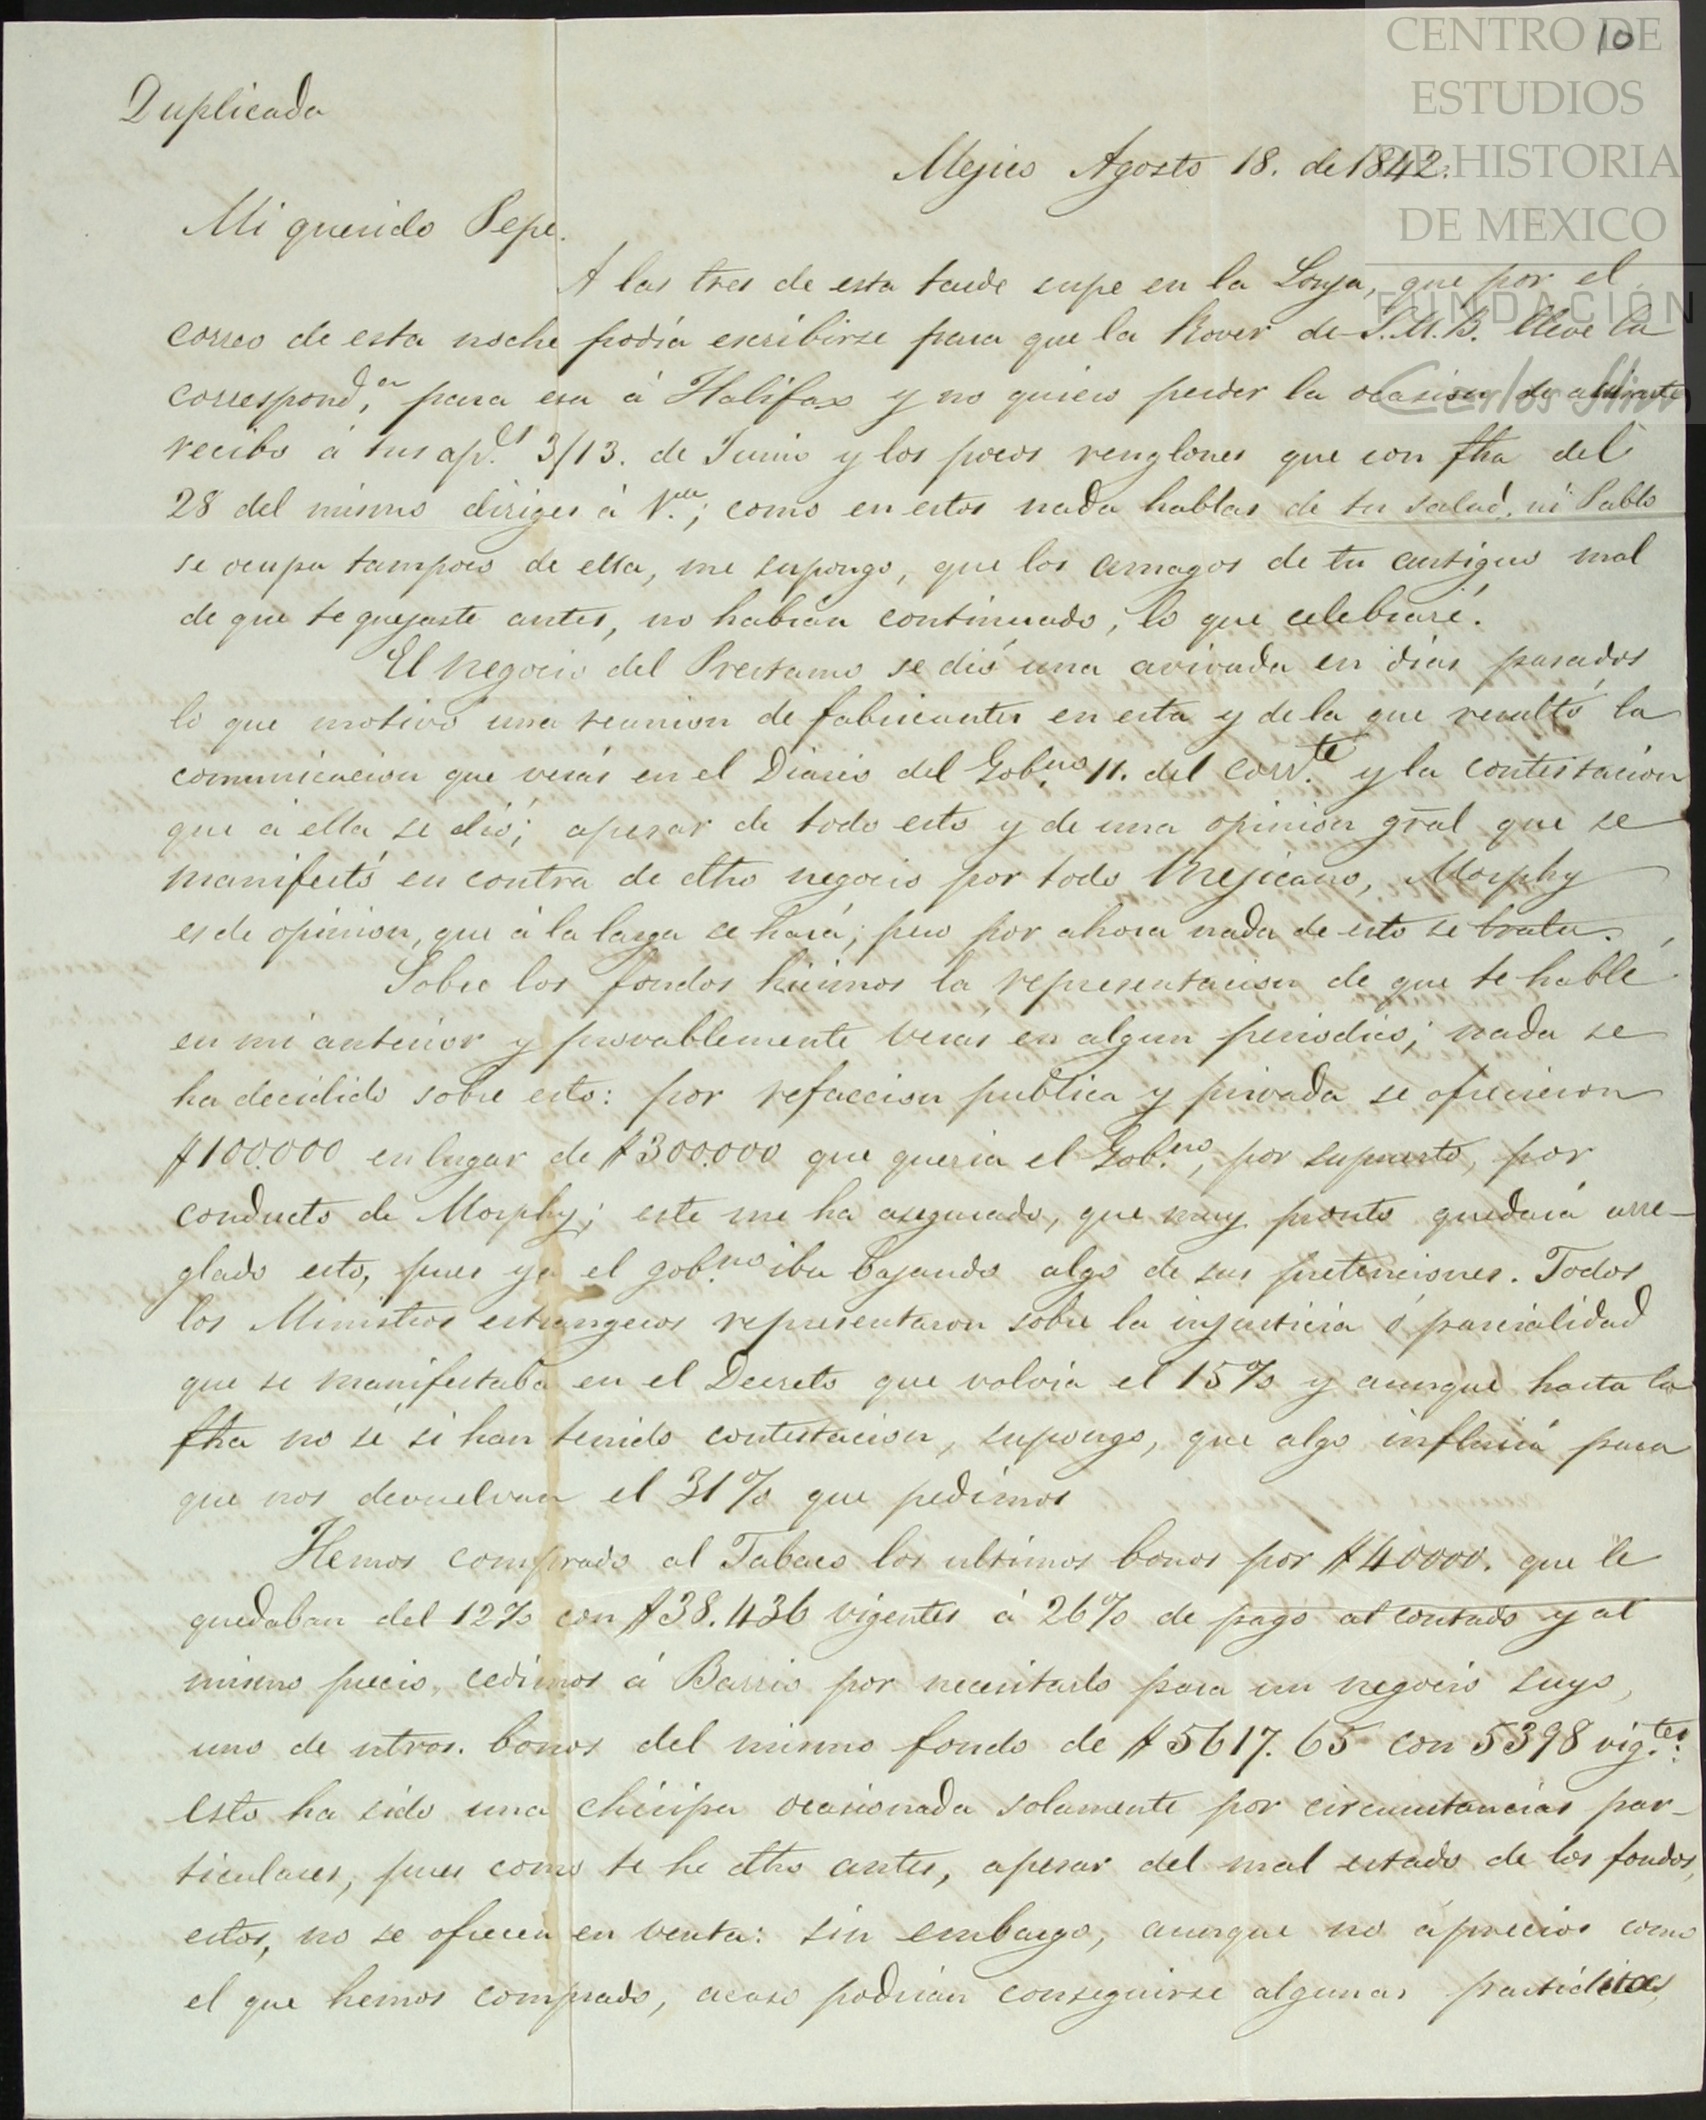 10
CENTRO DE
ESTUDIOS
DE HISTORIA
DE MEXICO
FUNDACIÓN
Carlos Slim
Duplicada
Mejico Agosto 18. de 1842.
Mi querido Pepe.
A las tres de esta tarde supe en la Lonja, que por el
correo de esta noche podia escribirse para que la Rover de S.M.B. lleve la
correspond.ª para esa á Halifax y no quiero perder la ocasion de
recibo á tus ap.s 3/13. de Junio y los pocos renglones que con fha del
28 del mismo diriges á; como en estos nada hablas de tu salud, ni Pablo
se ocupa tampoco de ella, me supongo, que los amagos de tu antiguo mal
de que te quejaste antes, no habian continuado, lo que celebraré.
El negocio del Prestamo se dió una avivada en dias pasados
lo que motivó una reunion de fabricantes en esta y de la que resultó la
comunicacion que verás en el Diario del Gob.no 11. del corr.te y la contestacion
que á ella se dió; apesar de todo esto y de una opinion gral que se
manifestó en contra de dho negocio por todo Mejicano, Morphy
es de opinion, que á la larga se hará; pero por ahora nada de esto se trata.
Sobre los fondos hicimos la representacion de que te hablé
en mi anterior y provablemente veras en algun periodico; nada se
ha decidido sobre esto: por refaccion publica y privada se ofrecieron
$100.000 en lugar de $300.000 que queria el Gob.no, por supuesto, por
conducto de Morphy; este me ha asegurado, que muy pronto quedará arre-
glado esto, pues ya el gob.no iba bajando algo de sus pretenciones. Todos
los Ministros estrangeros representaron sobre la injusticia ó parcialidad
que se manifestaba en el Decreto que volvia el 15% y aunque hasta la
fha no sé si han tenido contestacion, supongo, que algo influirá para
que nos devuelvan el 31% que pedimos
Hemos comprado al Tabaco los ultimos bonos por $40000. que le
quedaban del 12% con $38.436 vigentes á 26% de pago al contado y al
mismo precio, cedimos á Barrio por necesitarlo para un negocio suyo,
uno de ntros. bonos del mismo fondo de $5617.65 con 5398 vig.tes:
esto ha sido una chiripa ocasionada solamente por circunstancias par-
ticulares, pues como te he dho antes, apesar del mal estado de los fondos,
estos, no se ofrecen en venta: sin embargo, aunque no á precios como
el que hemos comprado, acaso podrian conseguirse algunas partiditas,